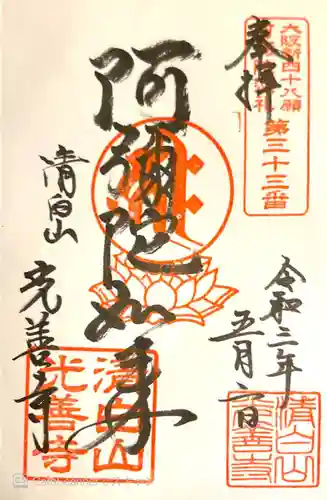 奉拝
大阪新四十八願
第三十三番
阿彌陀如来
清白山
光善寺
令和二年
五月六日
清白山
光善寺
清白山
光善寺